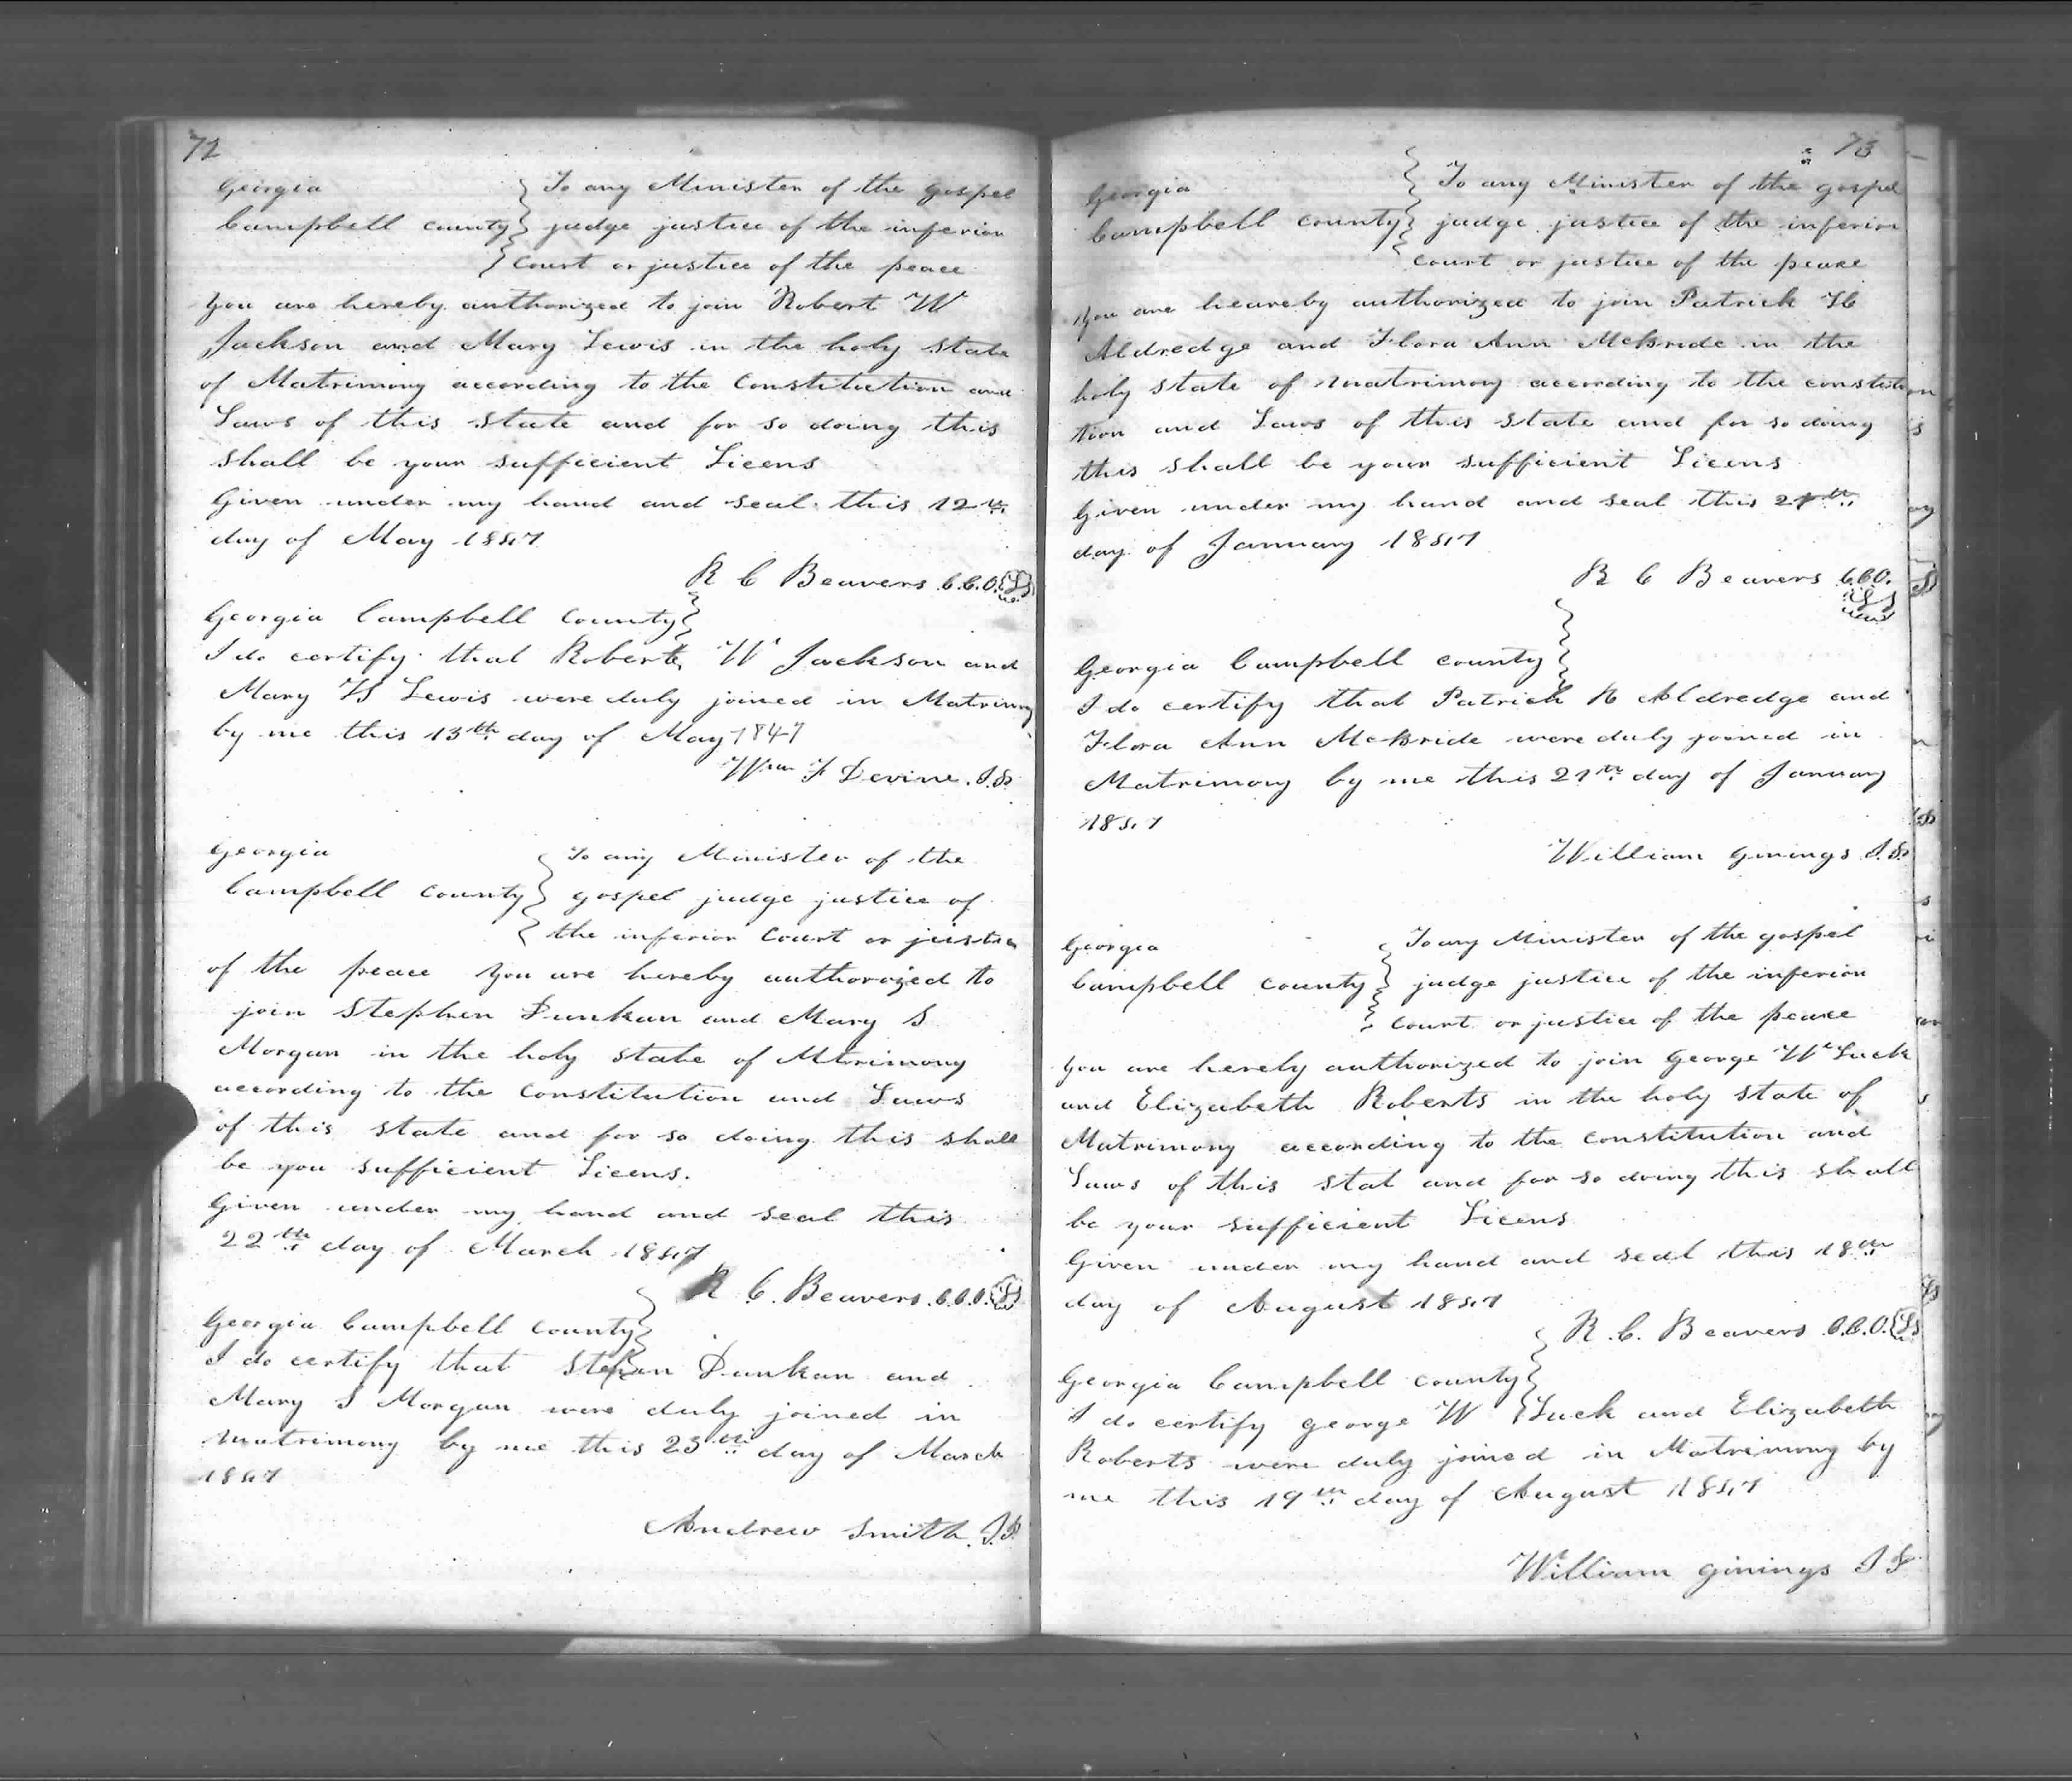 72
Georgia
Campbell county
To any Minister of the gospel
judge justice of the inferior
Court or justice of the peace
You are hereby authorized to join Robert W
Jackson and Mary Lewis in the holy state
of Matrimony according to the Constitution and
Laws of this state and for so doing this
shall be your sufficient Licens
Given under my hand and seal this 12th
day of May 1847
R C Beavers C.C.O. LS
Georgia Campbell County
I do certify that Robert W Jackson and
Mary Lewis were duly joined in Matrimony
by me this 13th day of May 1847
Wm F Devine. J.P.
Georgia
Campbell county
To any Minister of the
gospel judge justice of
the inferior Court or justice
of the peace You are hereby authorized to
join Stephen Dunkan and Mary S
Morgan in the holy state of Mtrimony
according to the Constitution and Laws
of this state and for so doing this shall
be you sufficient Licens.
Given under my hand and seal this
22th day of March 1847
R C. Beavers. C.C.O. LS
Georgia Campbell County
I do certify that Stephen Dunkan and
Mary S Morgan were duly joined in
matrimony by me this 23th day of March
1847
Andrew Smith. J.P.
73
Georgia
Campbell county
To any Minister of the gospel
judge justice of the inferior
Court or justice of the peace
You are heareby authorized to join Patrick H
Aldredge and Flora Ann McBride in the
holy state of matrimony according to the constitu
tion and Laws of this state and for so doing
this shall be your sufficient Licens
Given under my hand and seal this 21th
day of January 1847
R C Beavers C.C.O.
LS
Georgia Campbell county
I do certify that Patrick H Aldredge and
Flora Ann McBride were duly joined in
Matrimony by me this 21th day of January
1847
William Ginings J.P.
Georgia
Campbell county
To any Minister of the gospel
judge justice of the inferior
Court or justice of the peace
You are hereby authorized to join George W Luck
and Elizabeth Roberts in the holy state of
Matrimony according to the constitution and
Laws of this stat and for so doing this shall
be your sufficient Licens
Given under my hand and seal this 18th
day of August 1847
R. C. Beavers C.C.O. LS
Georgia Campbell county
I do certify george W Luck and Elizabeth
Roberts were duly joined in Matrimony by
me this 19th day of August 1847
William Ginings J P